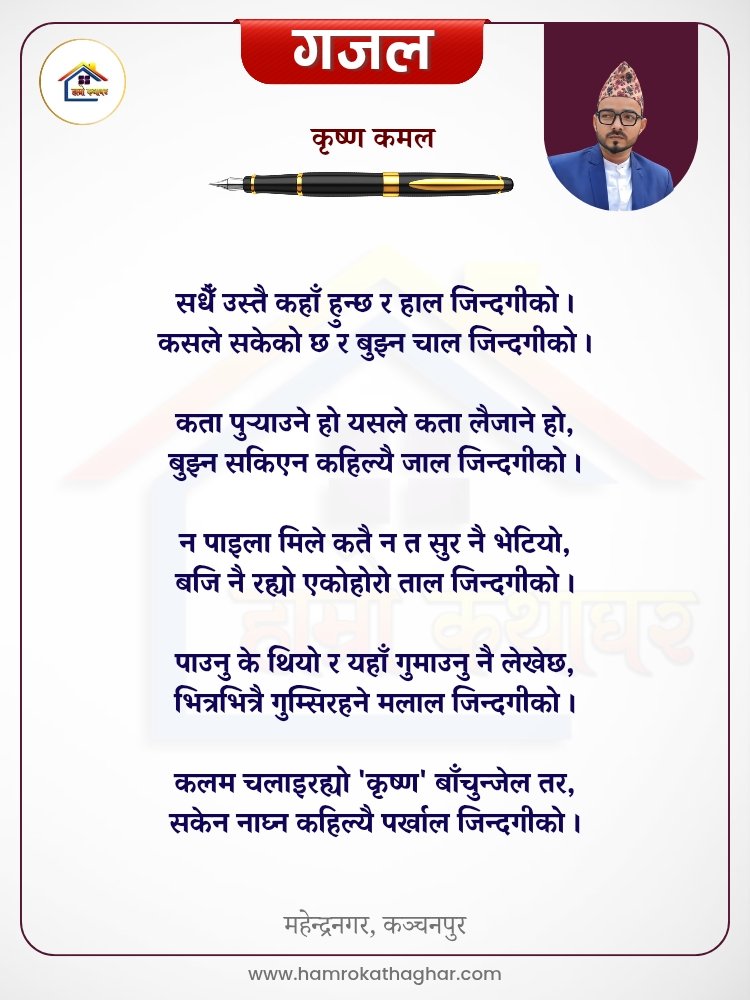 गजल
हाम्रो कथाघर
कृष्ण कमल
सधैँ उस्तै कहाँ हुन्छ र हाल जिन्दगीको ।
कसले सकेको छ र बुझ्न चाल जिन्दगीको ।
कता पुऱ्याउने हो यसले कता लैजाने हो,
बुझ्न सकिएन कहिल्यै जाल जिन्दगीको ।
न पाइला मिले कतै न त सुर नै भेटियो,
बजि नै रह्यो एकोहोरो ताल जिन्दगीको ।
पाउनु के थियो र यहाँ गुमाउनु नै लेखेछ,
भित्रभित्रै गुम्सिरहने मलाल जिन्दगीको ।
कलम चलाइरह्यो 'कृष्ण' बाँचुन्जेल तर,
सकेन नाघ्न कहिल्यै पर्खाल जिन्दगीको ।
हाम्रो कथाघर
महेन्द्रनगर, कञ्चनपुर
www.hamrokathaghar.com